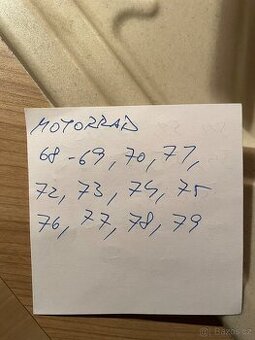 MOTORRAD
68-69, 70, 71,
72, 73, 74, 75
76, 77, 78, 79
Bazoš.cz